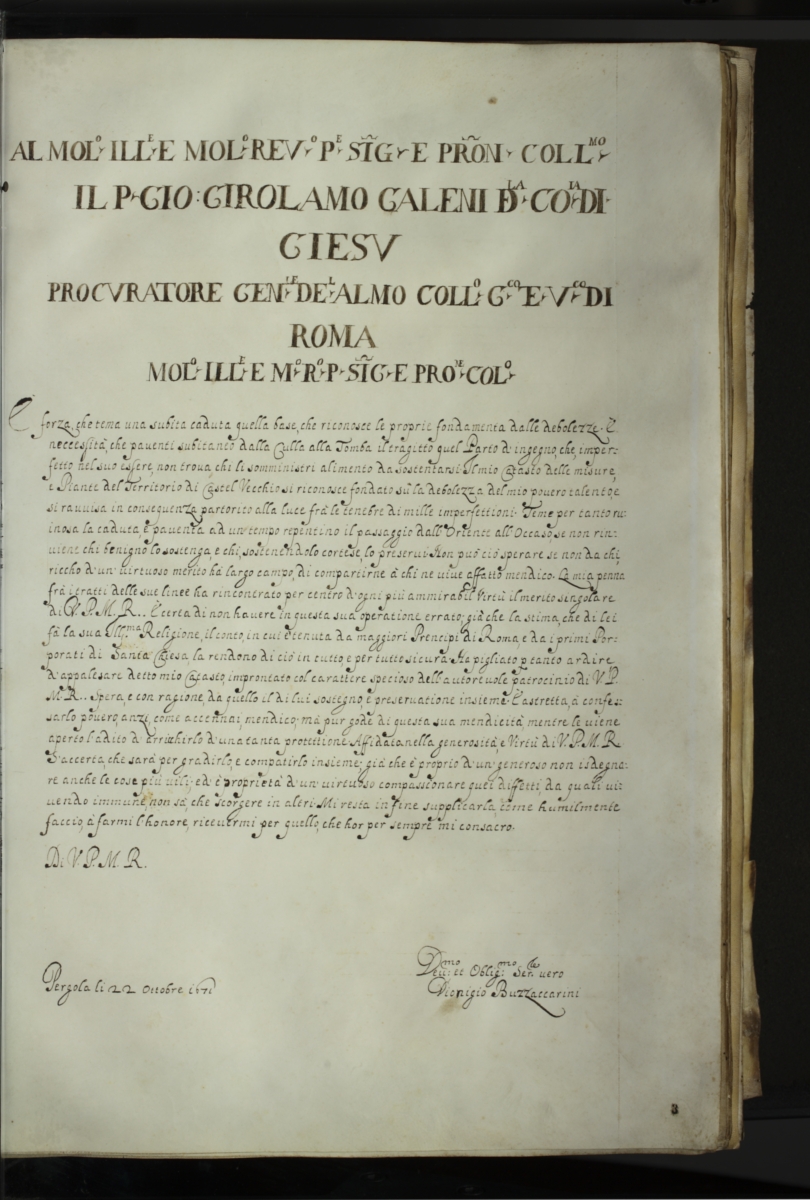 AL MOL.º ILL.E E MOL.º REV.º P.E SIG.r E PRÕN. COLL.MO
IL P. GIO: GIROLAMO GALENI D.LA CO.IA DI
GIESV
PROCVRATORE GEN.LE DE L'ALMO COLL.º G.CO E V.CO DI
ROMA
MOL.º ILL.E E M.º R.º P. SIG. E PRO.NE COL.º
È forza, che tema una subita caduta quella base, che riconosce le proprie fondamenta dalle debolezze. È
necessità, che paventi subitaneo dalla Culla alla Tomba il tragitto quel Parto d'ingegno, che, imper-
fetto nel suo essere, non trova, chi le somministri alimento da sostentarsi. Il mio Catasto delle misure,
e Piante del Territorio di Castel Vecchio si riconosce fondato sù la debolezza del mio povero talento, e
si ravvisa in consequenza partorito alla luce frà le tenebre di mille imperfettioni. Teme per tanto ru-
inosa la caduta e paventa ad un tempo repentino il passaggio dall'Oriente all'Occaso, se non rin-
viene chi benigno lo sostenga, e chi, sostenendolo cortese, lo preservi. Non può ciò sperare se non da chi,
riccho d'un virtuoso merito hà largo campo, di compartirne à chi ne vive affatto mendico. La mia penna
frà i tratti delle sue linee ha rincontrato per centro d'ogni più ammirabil Virtù il merito sengolare
di V. P. M. R.. È certa di non havere in questa sua operatione errato; già che la stima, che di lei
fà la sua Ill.ma Religione, il conto, in cui è tenuta da maggiori Prencipi di Roma, e da i primi Por-
porati di Santa Chiesa la rendono di ciò in tutto, e per tutto sicura. Hà pigliato p tanto ardire
d'appalesare detto mio Catasto, improntato col carattere specioso dell'autorevole patrocinio di V. P.
M. R.. Spera, e con ragione, da quello il di lui sostegno, e preservatione insieme. È astretta, à confes-
sarlo povero, anzi, come accennai, mendico; mà pur gode di questa sua mendicità, mentre le viene
aperto l'adito d'arrichirlo d'una tanta protettione. Affidata nella generosità, e Virtù di V. P. M. R.
S'accerta, che sarà per gradirlo, e compatirlo insieme; già che è proprio d'un generoso non isdegna-
re anche le cose più vili; ed è proprietà d'un virtuoso compassionare quei diffetti, da quali vi-
vendo immune non sà, che scorgere in altri. Mi resta in fine supplicarla, come humilmente
faccio, à farmi l'honore, ricevermi per quello, che hor per sempre mi consacro.
Di V. P. M. R.
Pergola li 22 Ottobre 1671
Dev.mo et Oblig.mo Ser.re vero
Dionigio Buzzaccarini
3